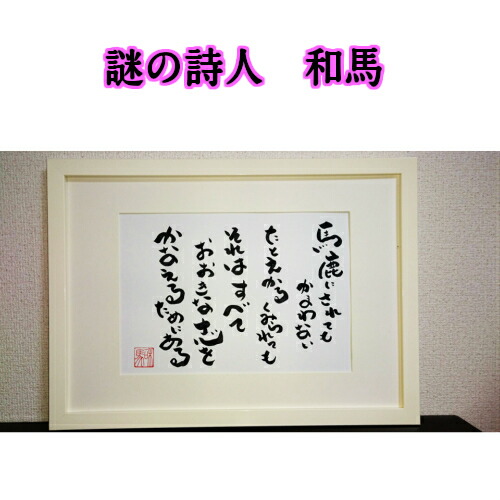 謎の詩人　和馬
馬鹿にされても
かまわない
たとえかる
くみられても
それはすべて
おおきな志を
かなえる
ためにある